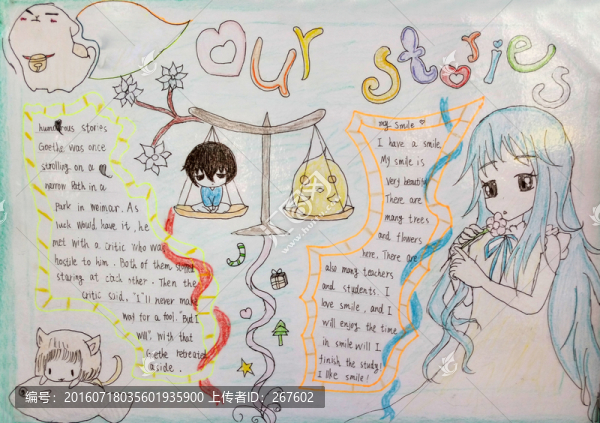 our stories
humorous stories
Goethe was once
strolling on a
narrow Path in a
Park in meimar. As
luck Would have it, he
met with a critic who was
hostile to him. Both of them stood
staring at each other. Then the
critic said, "I'll never make
way for a fool. But I
will" with that
Goethe retreated
aside.
my smile
I have a smile
My smile is
very beautiful
There are
many trees
and flowers
here. There are
also many teachers
and students. I
love smile, and I
will enjoy the time
in smile will I
finish the study!
I like smile!
编号：20160718035601935900 上传者ID：267602